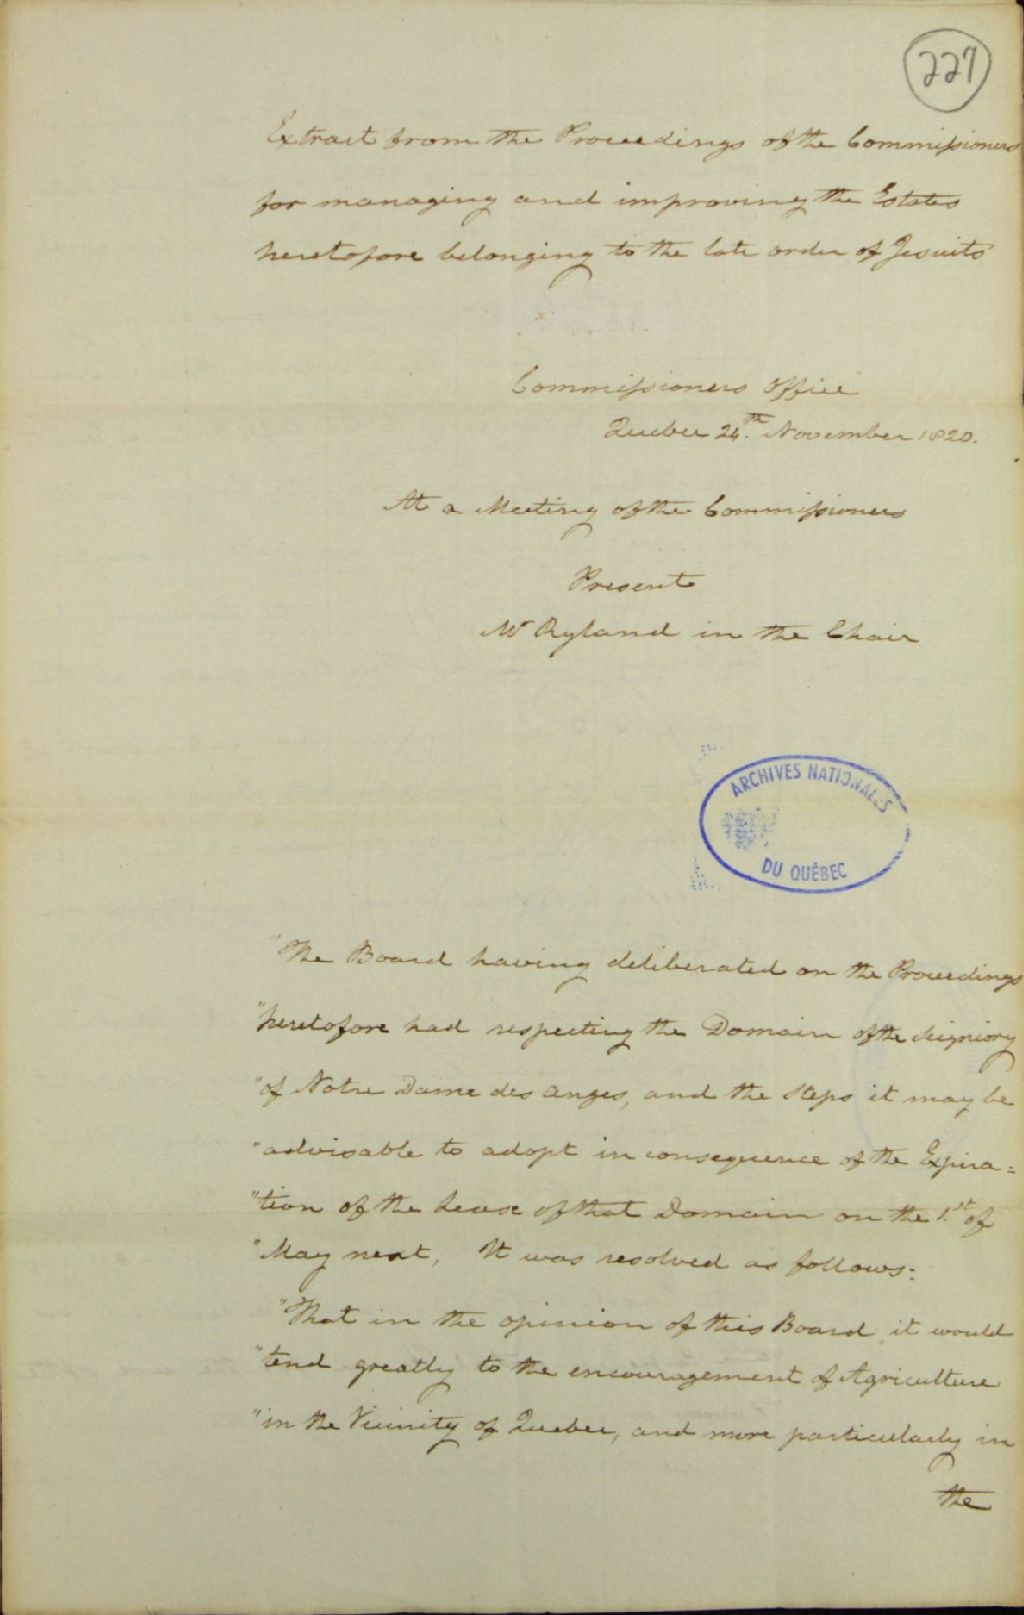 227
Extract from the Proceedings of the Commissioners
for managing and improving the Estates
heretofore belonging to the late order of Jesuits
Commissioners Office
Quebec 24.th November 1820.
At a Meeting of the Commissioners
Present
Mr Ryland in the Chair
ARCHIVES NATIONALES
DU QUÉBEC
"The Board having deliberated on the Proceedings
"heretofore had respecting the Domain of the Seigniory
"of Notre Dame des Anges, and the Steps it may be
"advisable to adopt in consequence of the Expira=
"tion of the Lease of that Domain on the 1.st of
"May next, It was resolved as follows:
"That in the opinion of this Board, it would
"tend greatly to the encouragement of Agriculture
"in the Vicinity of Quebec, and more particularly in
the